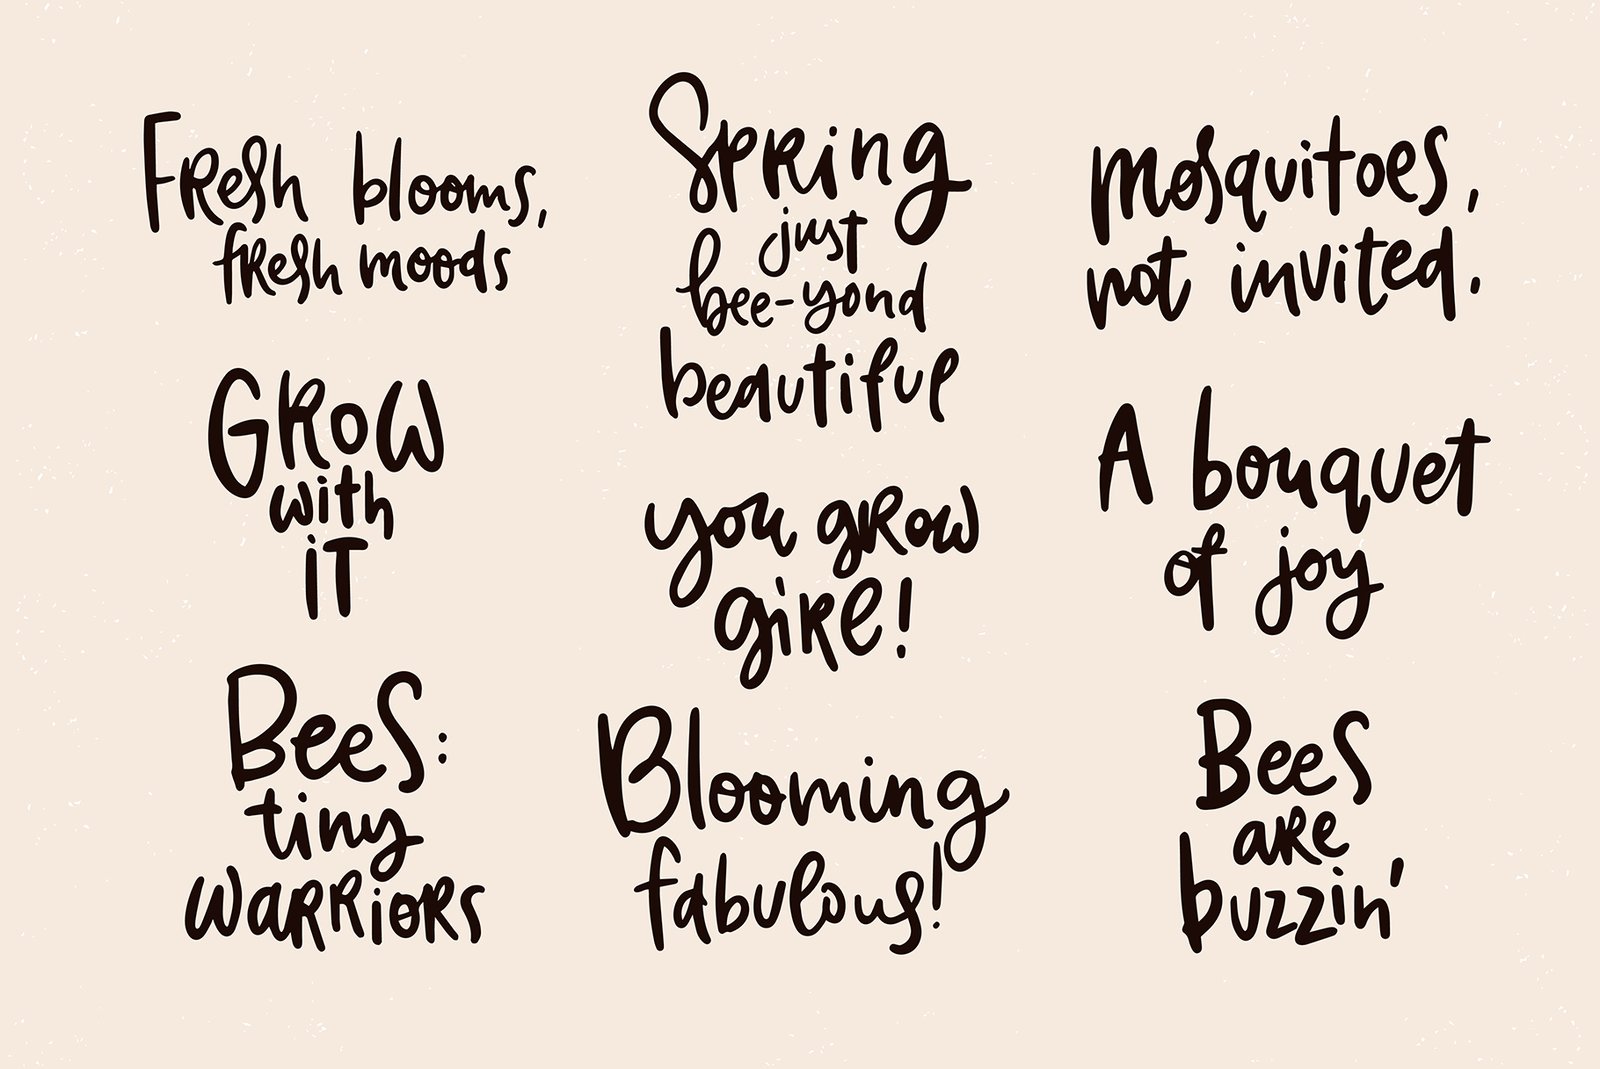 Fresh blooms,
fresh moods
Grow
with
it
Bees:
tiny
warriors
Spring
just
bee-yond
beautiful
you grow
gire!
Blooming
fabulous!
mosquitoes,
not invited.
A bouquet
of joy
Bees
are
buzzin'